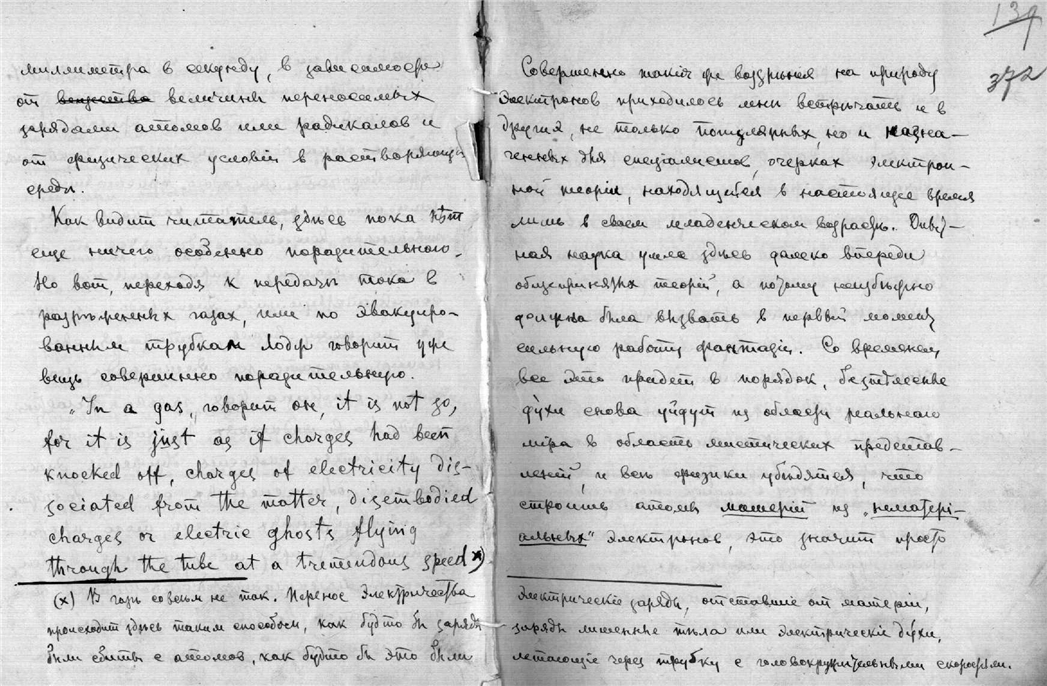 миллиметра в секунду, в зависимости
от вещества величины переносимых
зарядами атомов или радикалов и
от физических условiй в растворяющей
среды.
Как видит читатель, здѣсь пока нѣт
еще ничего особенно поразительнаго.
Но вот, переходя к передачѣ тока в
разрѣженных газах, или по эвакуиро-
ванным трубкам Лодж говорит уже
вещь совершенно поразительную.
„In a gas, говорит он, it is not so,
for it is just as if charges had been
knocked off, charges of electricity dis-
sociated from the matter, disembodied
charges or electric ghosts flying
through the tube at a tremendous speed x)
(x) В газѣ совсѣм не так. Перенос электричества
происходит здѣсь таким способом, как будто бы заряды
были сбиты с атомов, как будто бы это были
139
372
Совершенно такiя же воззрѣнiя на природу
электронов приходилось мнѣ встрѣчать и в
других, не только популярных, но и назна-
ченных для спецiалистов, очерках электрон-
ной теорiи, находящейся в настоящее время
лишь в своем младенческом возрастѣ. Опыт-
ная наука ушла здѣсь далеко впереди
общепринятых теорiй, а потому неизбѣжно
должна была вызвать в первый момент
сильную работу фантазiи. Со временем
все это придет в порядок, безтѣлесные
духи снова уйдут из области реальнаго
мiра в область мистических представ-
ленiй, и всѣ физики убѣдятся, что
строить атомы матерiи из „нематерi-
альных" электронов, это значит просто
электрическiе заряды, отставшiе от матерiи,
заряды лишенные тѣла или электрическiе духи,
летающiе через трубку с головокружительными скоростями.